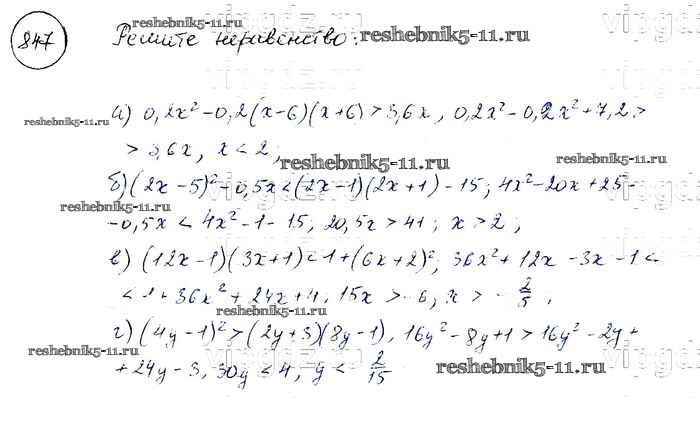 847 Решите неравенство:
reshebnik5-11.ru
reshebnik5-11.ru
а) 0,2x² - 0,2(x-6)(x+6) > 3,6x, 0,2x² - 0,2x² + 7,2 >
reshebnik5-11.ru
> 3,6x, x < 2;
reshebnik5-11.ru
б) (2x-5)² - 0,5x < (2x-1)(2x+1) - 15; 4x² - 20x + 25 -
reshebnik5-11.ru
- 0,5x < 4x² - 1 - 15; 20,5x > 41; x > 2;
в) (12x-1)(3x+1) < 1 + (6x+2)²; 36x² + 12x - 3x - 1 <
reshebnik5-11.ru
< 1 + 36x² + 24x + 4, 15x > -6; x > -2/5,
г) (4y-1)² > (2y+3)(8y-1), 16y² - 8y + 1 > 16y² - 2y +
reshebnik5-11.ru
reshebnik5-11.ru
+ 24y - 3, 30y < 4, y < 2/15